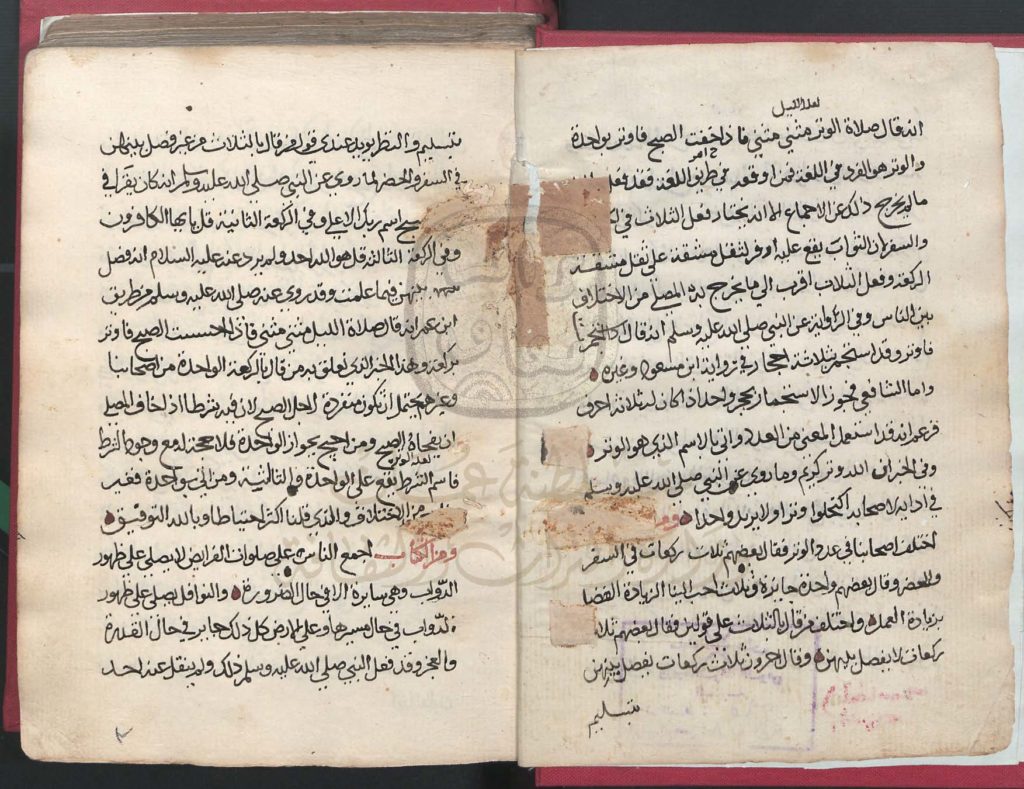 لعله الليل
انه قال صلاة الوتر مثني مثني فاذا خفت الصبح فاوتر بواحدة
والوتر هو الفرد في اللغة فمن اوقعه في طريق اللغة فقد فعل
مالم يخرج ذلك عن الاجماع الا انه يختار فعل الثلاث في
والسفر ان الثواب يقع عليه اوفر لثقل مشقة على ثقل مشقة
الركعة وفعل الثلاث اقرب الي ما يخرج به المصلي من الاختلاف
بين الناس وفي الرواية عن النبي صلي الله عليه وسلم انه قال اذا
فاوتر وقد استجمر بثلاثة احجار في رواية ابن مسعود وغيره
واما الشافعي فجوز الاستجمار بحجر واحد اذا كان له ثلاثة احرف
فزعم انه قد استعمل المعني من العدد واتي بالاسم الذي هو الوتر
وفي الخبر ان الله وتر كريم وما روي عن النبي صلي الله عليه وسلم
في ادابه لاصحابه اكتحلوا وترا ولا يريد واحدا
اختلف اصحابنا في عدد الوتر فقال بعضهم ثلاث ركعات في السفر
والحضر وقال بعضهم واحدة جايزة وثلاث احب الينا لزيادة الفضل
بزيادة العمل واختلف من قال بالثلاث علي قولين فقال بعضهم ثلاث
ركعات لا يفصل بينهن وقال اخرون ثلاث ركعات يفصل بينهن
بتسليم
بتسليم والنظر يويد عندي قول من قال بالثلاث من غير فصل بينهن
في السفر والحضر لما روي عن النبي صلي الله عليه وسلم انه كان يقرا في
سبح اسم ربك الاعلي وفي الركعة الثانية قل يايها الكافرون
وفي الركعة الثالثة قل هو الله احد ولم يرد عنه عليه السلام انه فصل
بينهن فيما علمت وقد روي عنه صلي الله عليه وسلم من طريق
ابن عمر انه قال صلاة الليل مثني مثني فاذا احسست الصبح فاوتر
بركعة وهذا الخبر الذي تعلق به من قال بالركعة الواحدة من اصحابنا
وغيرهم يحتمل ان تكون منفردة لاجل الصبح لان فيه شرطا اذ لخاف المصلي
ان يفجاه الصبح ومن احتج بجواز الواحدة فلا حجة له مع وجود الشرط
لعله الوتر
فاسم الشرط يقع علي الواحدة والثالثة ومن اتي بواحدة فغير
من الاختلاف والذي قلنا اكثر احتياطا وبالله التوفيق
ومن الكتاب اجمع الناس علي صلوات الفرايض لا يصلي علي ظهور
الدواب وهي سايرة الا في حال الضرورة والنوافل يصلي علي ظهور
الدواب في حال مسيرها وعلي الارض كل ذلك جايز في حال القدرة
والعجز وقد فعل النبي صلي الله عليه وسلم ذلك ولم ينقل عنه احد